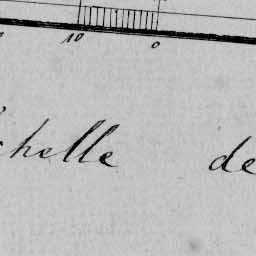 10 0
chelle de